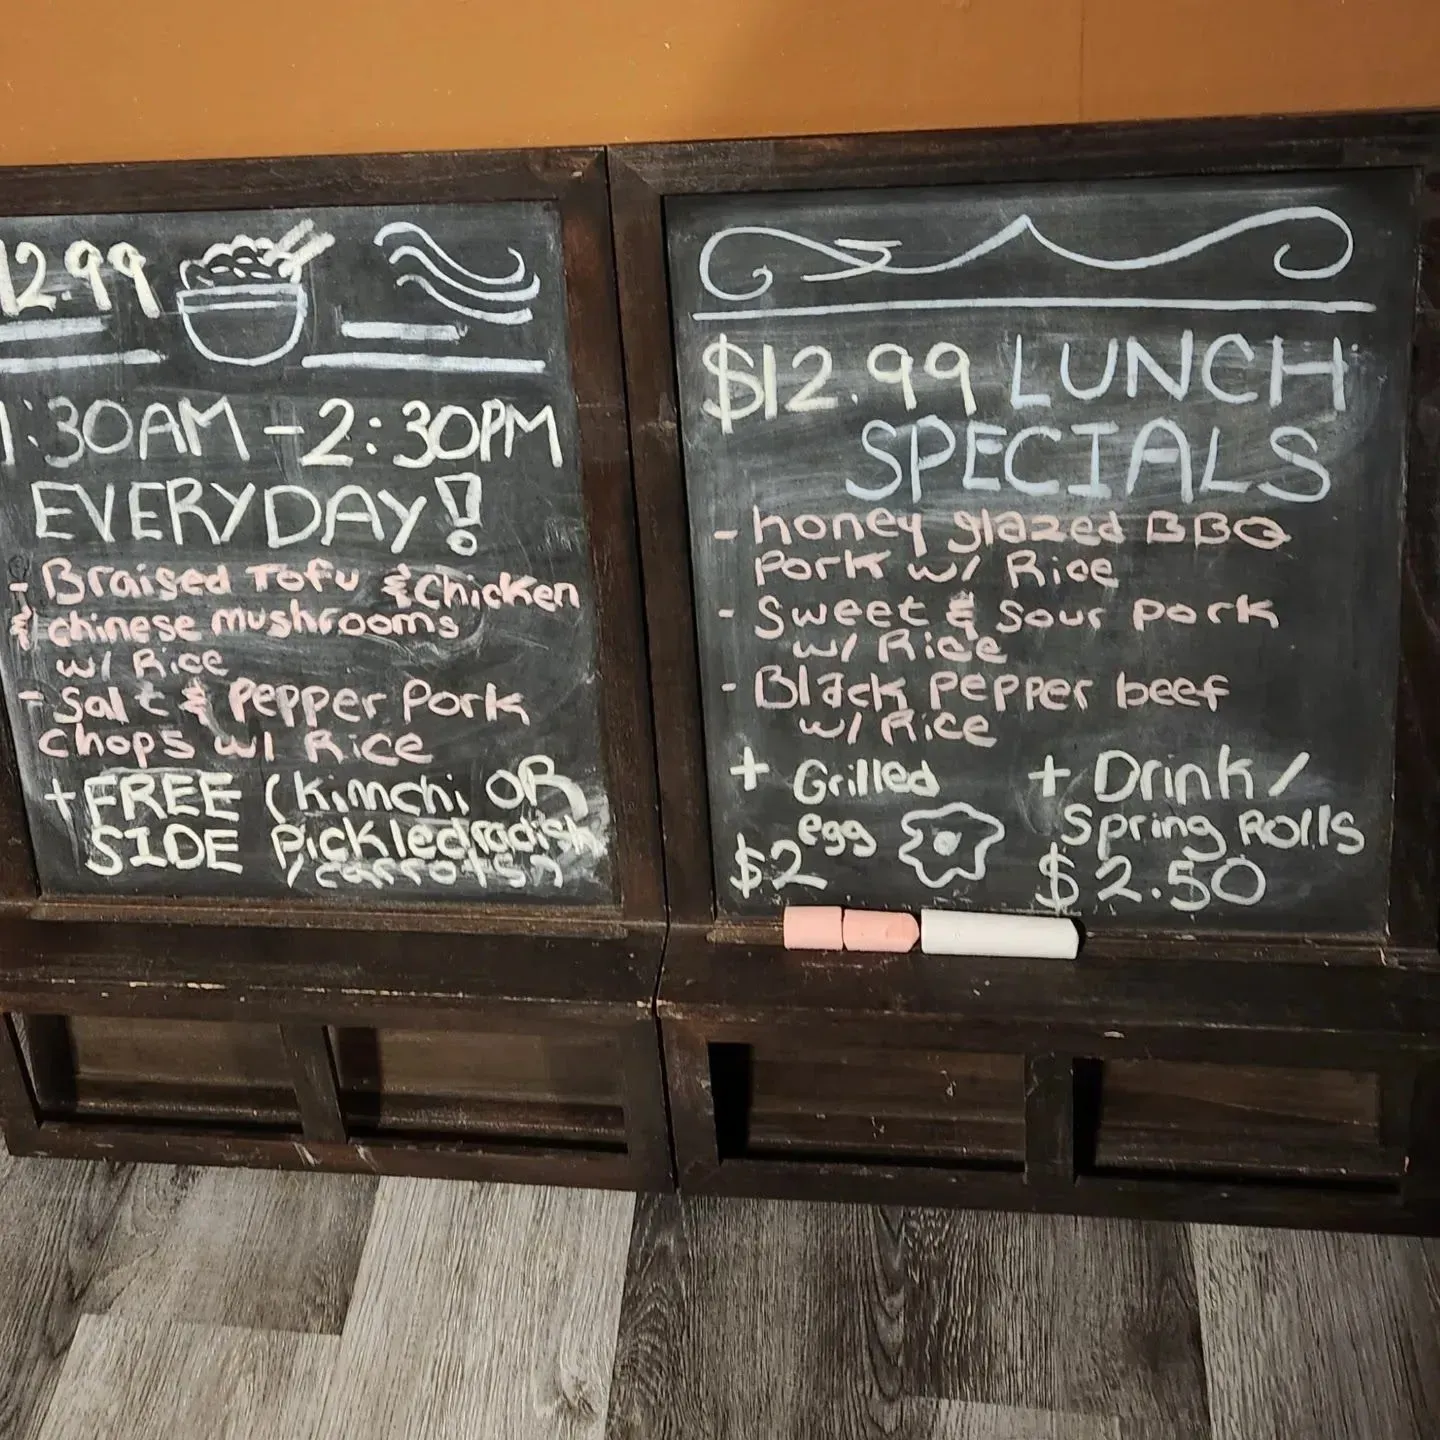 12.99
1:30AM - 2:30PM
EVERYDAY!
- Braised Tofu & Chicken
& chinese mushrooms
w/ Rice
- Salt & Pepper Pork
Chops w/ Rice
+ FREE (Kimchi OR
SIDE Pickled radish
/carrots)
$12.99 LUNCH
SPECIALS
- honey glazed BBQ
Pork w/ Rice
- Sweet & Sour Pork
w/ Rice
- Black Pepper beef
w/ Rice
+ Grilled
egg
$2
+ Drink /
Spring Rolls
$2.50